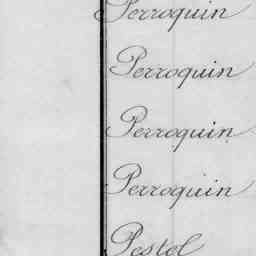 Perroquin
Perroquin
Perroquin
Perroquin
Pestel